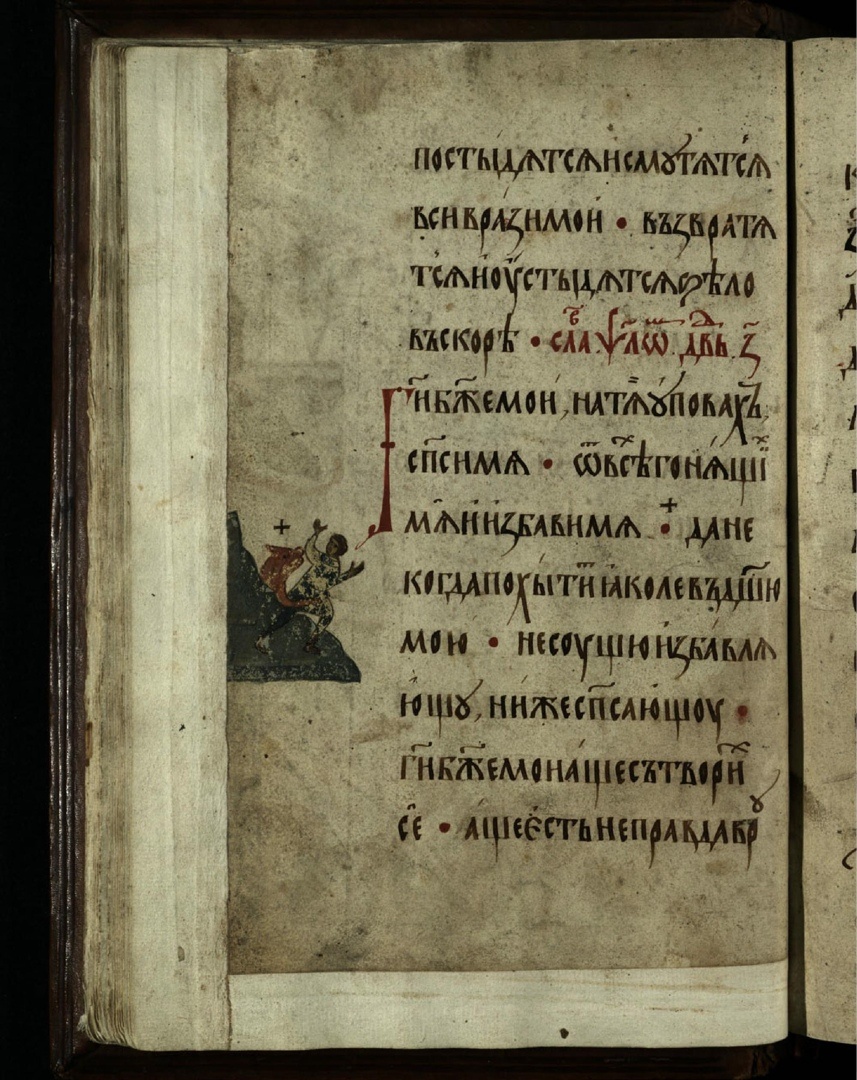 постыдѧтсѧ и смꙋтѧтсѧ
вси врази мои • възвратѧ
тсѧ и оустыдѧтсѧ ѕѣло
въскорѣ • сла ѱл҃ѡ дв҃ъ з҃
Г҃и бж҃е мои, на тѧ оуповахъ,
сп҃си мѧ • ѿ всѣ гонѧщїи
мѧ и избави мѧ • да не
когда похытⷮи ꙗко левъ дш҃ю
мою • не соущю избавлѧ
ющꙋ, ниже сп҃сающоу •
г҃и бж҃е мо аще сътвори
се • аще есть неправда врꙋ